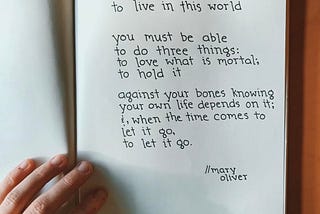 to live in this world
you must be able
to do three things:
to love what is mortal;
to hold it
against your bones knowing
your own life depends on it;
&, when the time comes to
let it go,
to let it go.
//mary
oliver